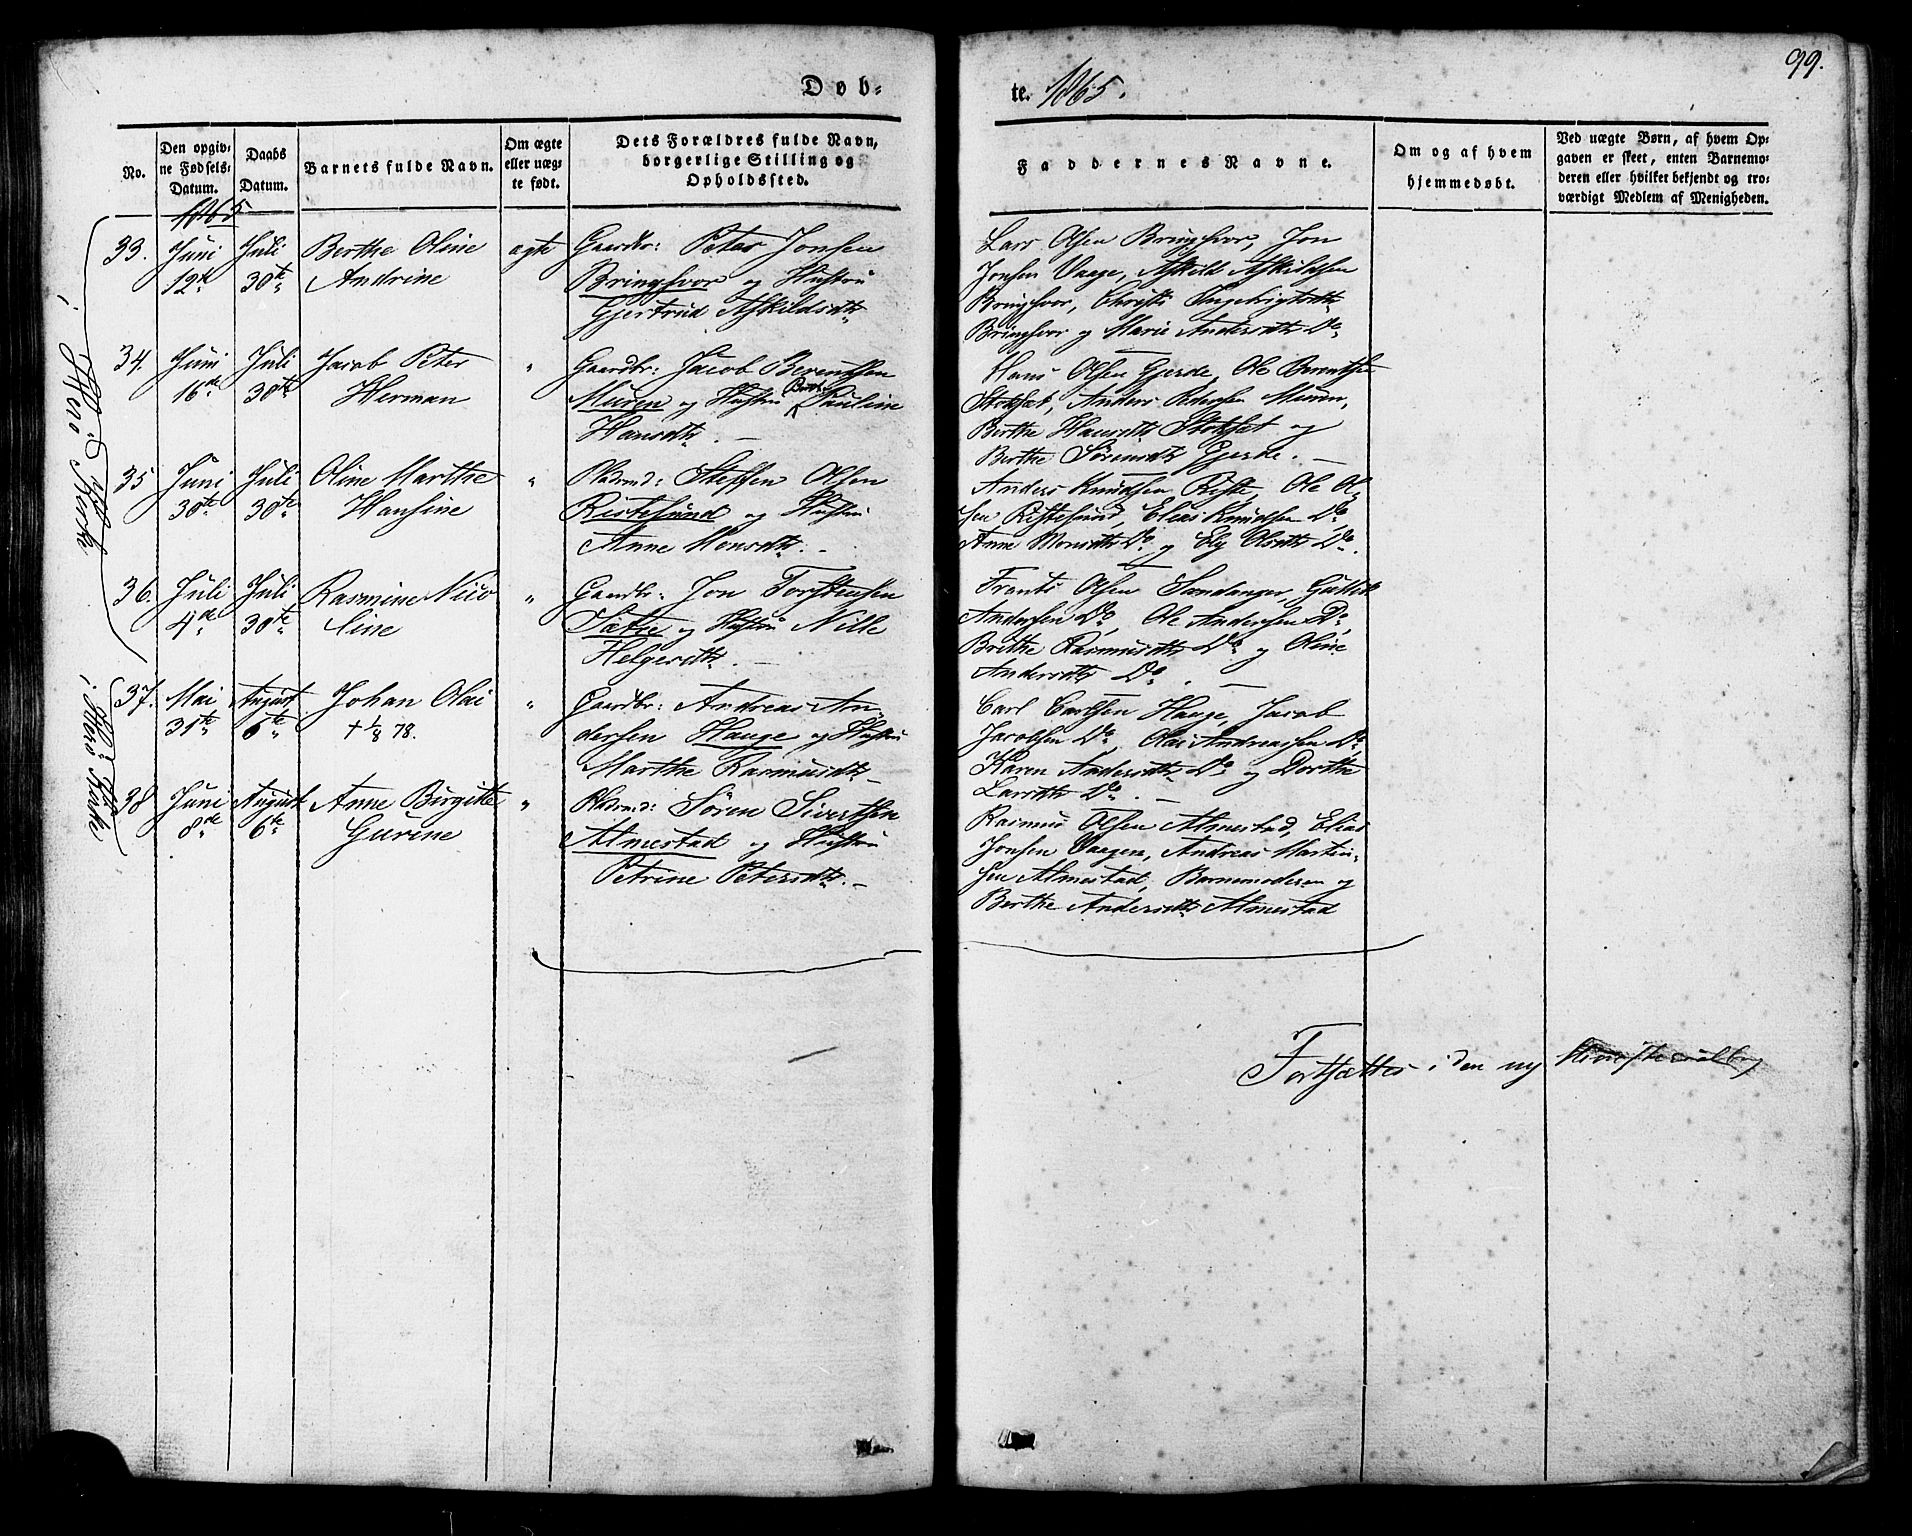 Døb-
te. 1865.
99.
No.
Den opgiv-
ne Fødsels-
Datum.
Daabs
Datum.
Barnets fulde Navn.
Om ægte
eller uæg-
te født.
Dets Forældres fulde Navn,
borgerlige Stilling og
Opholdssted.
Faddernes Navne.
Om og af hvem
hjemmedøbt.
Ved uægte Børn, af hvem Op-
gaven er skeet, enten Barnemo-
deren eller hvilket bekjendt og tro-
værdigt Medlem af Menigheden.
1865
i Herø Kirke
33. Juni Juli Berthe Oline ægte Gaardbr: Peter Jonsen
12te 30te Andrine Bringsvor og Hustru
Gjertrud Askildsdtr
Lars Olsen Bringsvor, Jon
Jonsen Vaage, Askild Askildsen
Bringsvor, Christi Ingebrigtsdtr
Bringsvor og Marie Andersdtr Do
34. Juni Juli Jacob Peter " Gaardbr: Jacob Berentsen
16de 30te Herman Muren og Hustru Pauline
Hansdtr. —
Hans Olsen Gjerde, Ole Berentsen
Stokset, Anders Pedersen Muren,
Berthe Hansdtr Stokset og
Berthe Sørensdtr Gjerde. —
35 Juni Juli Oline Marthe " Steffen Olsen
30te 30te Hansine Ristesund og Hustru
Anne Monsdtr. —
Anders Knudsen Riste, Ole Ol-
sen Ristesund, Elias Knudsen Do,
Anne Monsdtr Do og Ely Olsdtr Do.
36. Juli Juli Rasmine Nico " Gaardbr: Jon Torstensen
4de 30te line Sætre og Hustru Nille
Helgesdtr. —
Frants Olsen Sandanger, Guttorm
Andersen Do, Ole Andersen Do,
Berthe Rasmusdtr Do og Oline
Andersdtr Do. —
i Herø Kirke
37. Mai August Johan Olai " Gaardbr: Andreas An-
31te 6te † 1/8 78. dersen Hauge og Hustru
Marthe Rasmusdtr
Carl Carlsen Hauge, Jacob
Jacobsen Do, Olai Andreassen Do,
Karen Andersdtr Do og Dorthe
Larsdtr Do. —
38 Juni August Anne Birgitte " Søren Sivertsen
8de 6te Gurine Almestad og Hustru
Petrine Petersdtr. —
Rasmus Olsen Almestad, Elias
Jonsen Vaagen, Andreas Martin-
sen Almestad, Barnemoderen og
Berthe Andersdtr Almestad
Fortsættes i den ny Ministerialbog